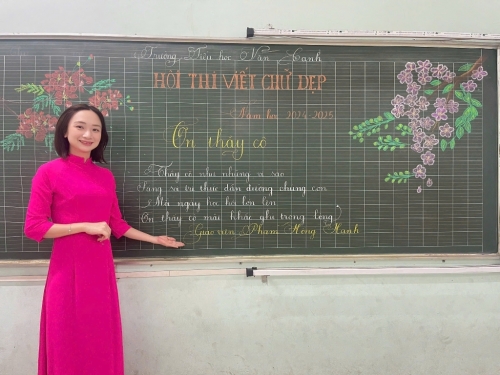 Trường Tiểu học Nan Hanh
HỘI THI VIẾT CHỮ ĐẸP
Năm học 2024-2025
Ơn thầy cô
Thầy cô như những vì sao
Sáng soi trí thức dẫn đường chúng con
Mai ngày học hỏi lớn lên
Ơn thầy cô mãi khắc ghi trong lòng
Giáo viên Phạm Hồng Hạnh